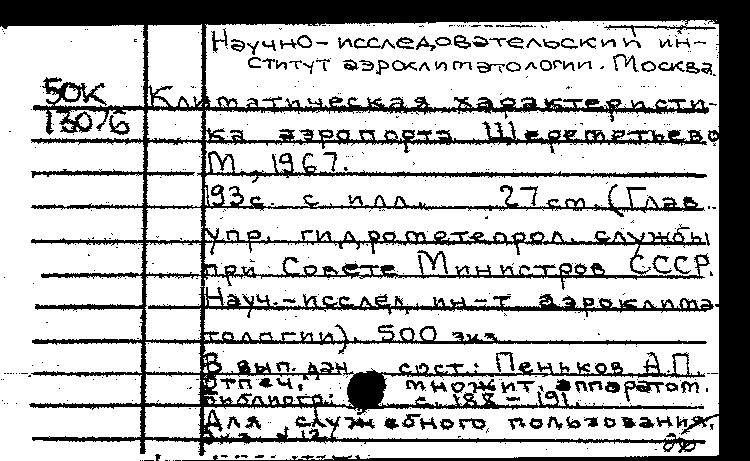 Научно-исследовательский ин-
ститут аэроклиматологии. Москва
50К
13076
Климатическая характеристи-
ка аэропорта Шереметьево
М., 1967.
193с. с илл. 27см. (Глав.
упр. гидрометеорол. службы
при Совете Министров СССР.
Науч.-исслед. ин-т аэроклима-
тологии). 500 экз.
В вып. дан. сост.: Пеньков А.П.
Отпеч. множит. аппаратом.
Библиогр.: с. 188-191.
Для служебного пользования.
Экз. №12